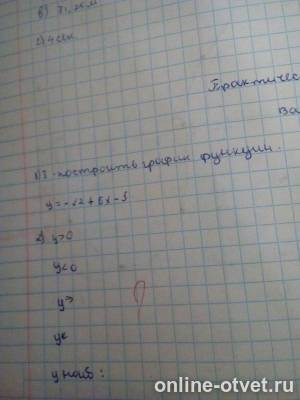 в) 31,25 м
с) 4 сек
Практичес
Ва
1) I - построить график функции.
y = -x2 + 6x - 5
2) y>0
y<0
y↗
y<
y наиб:
online-otvet.ru